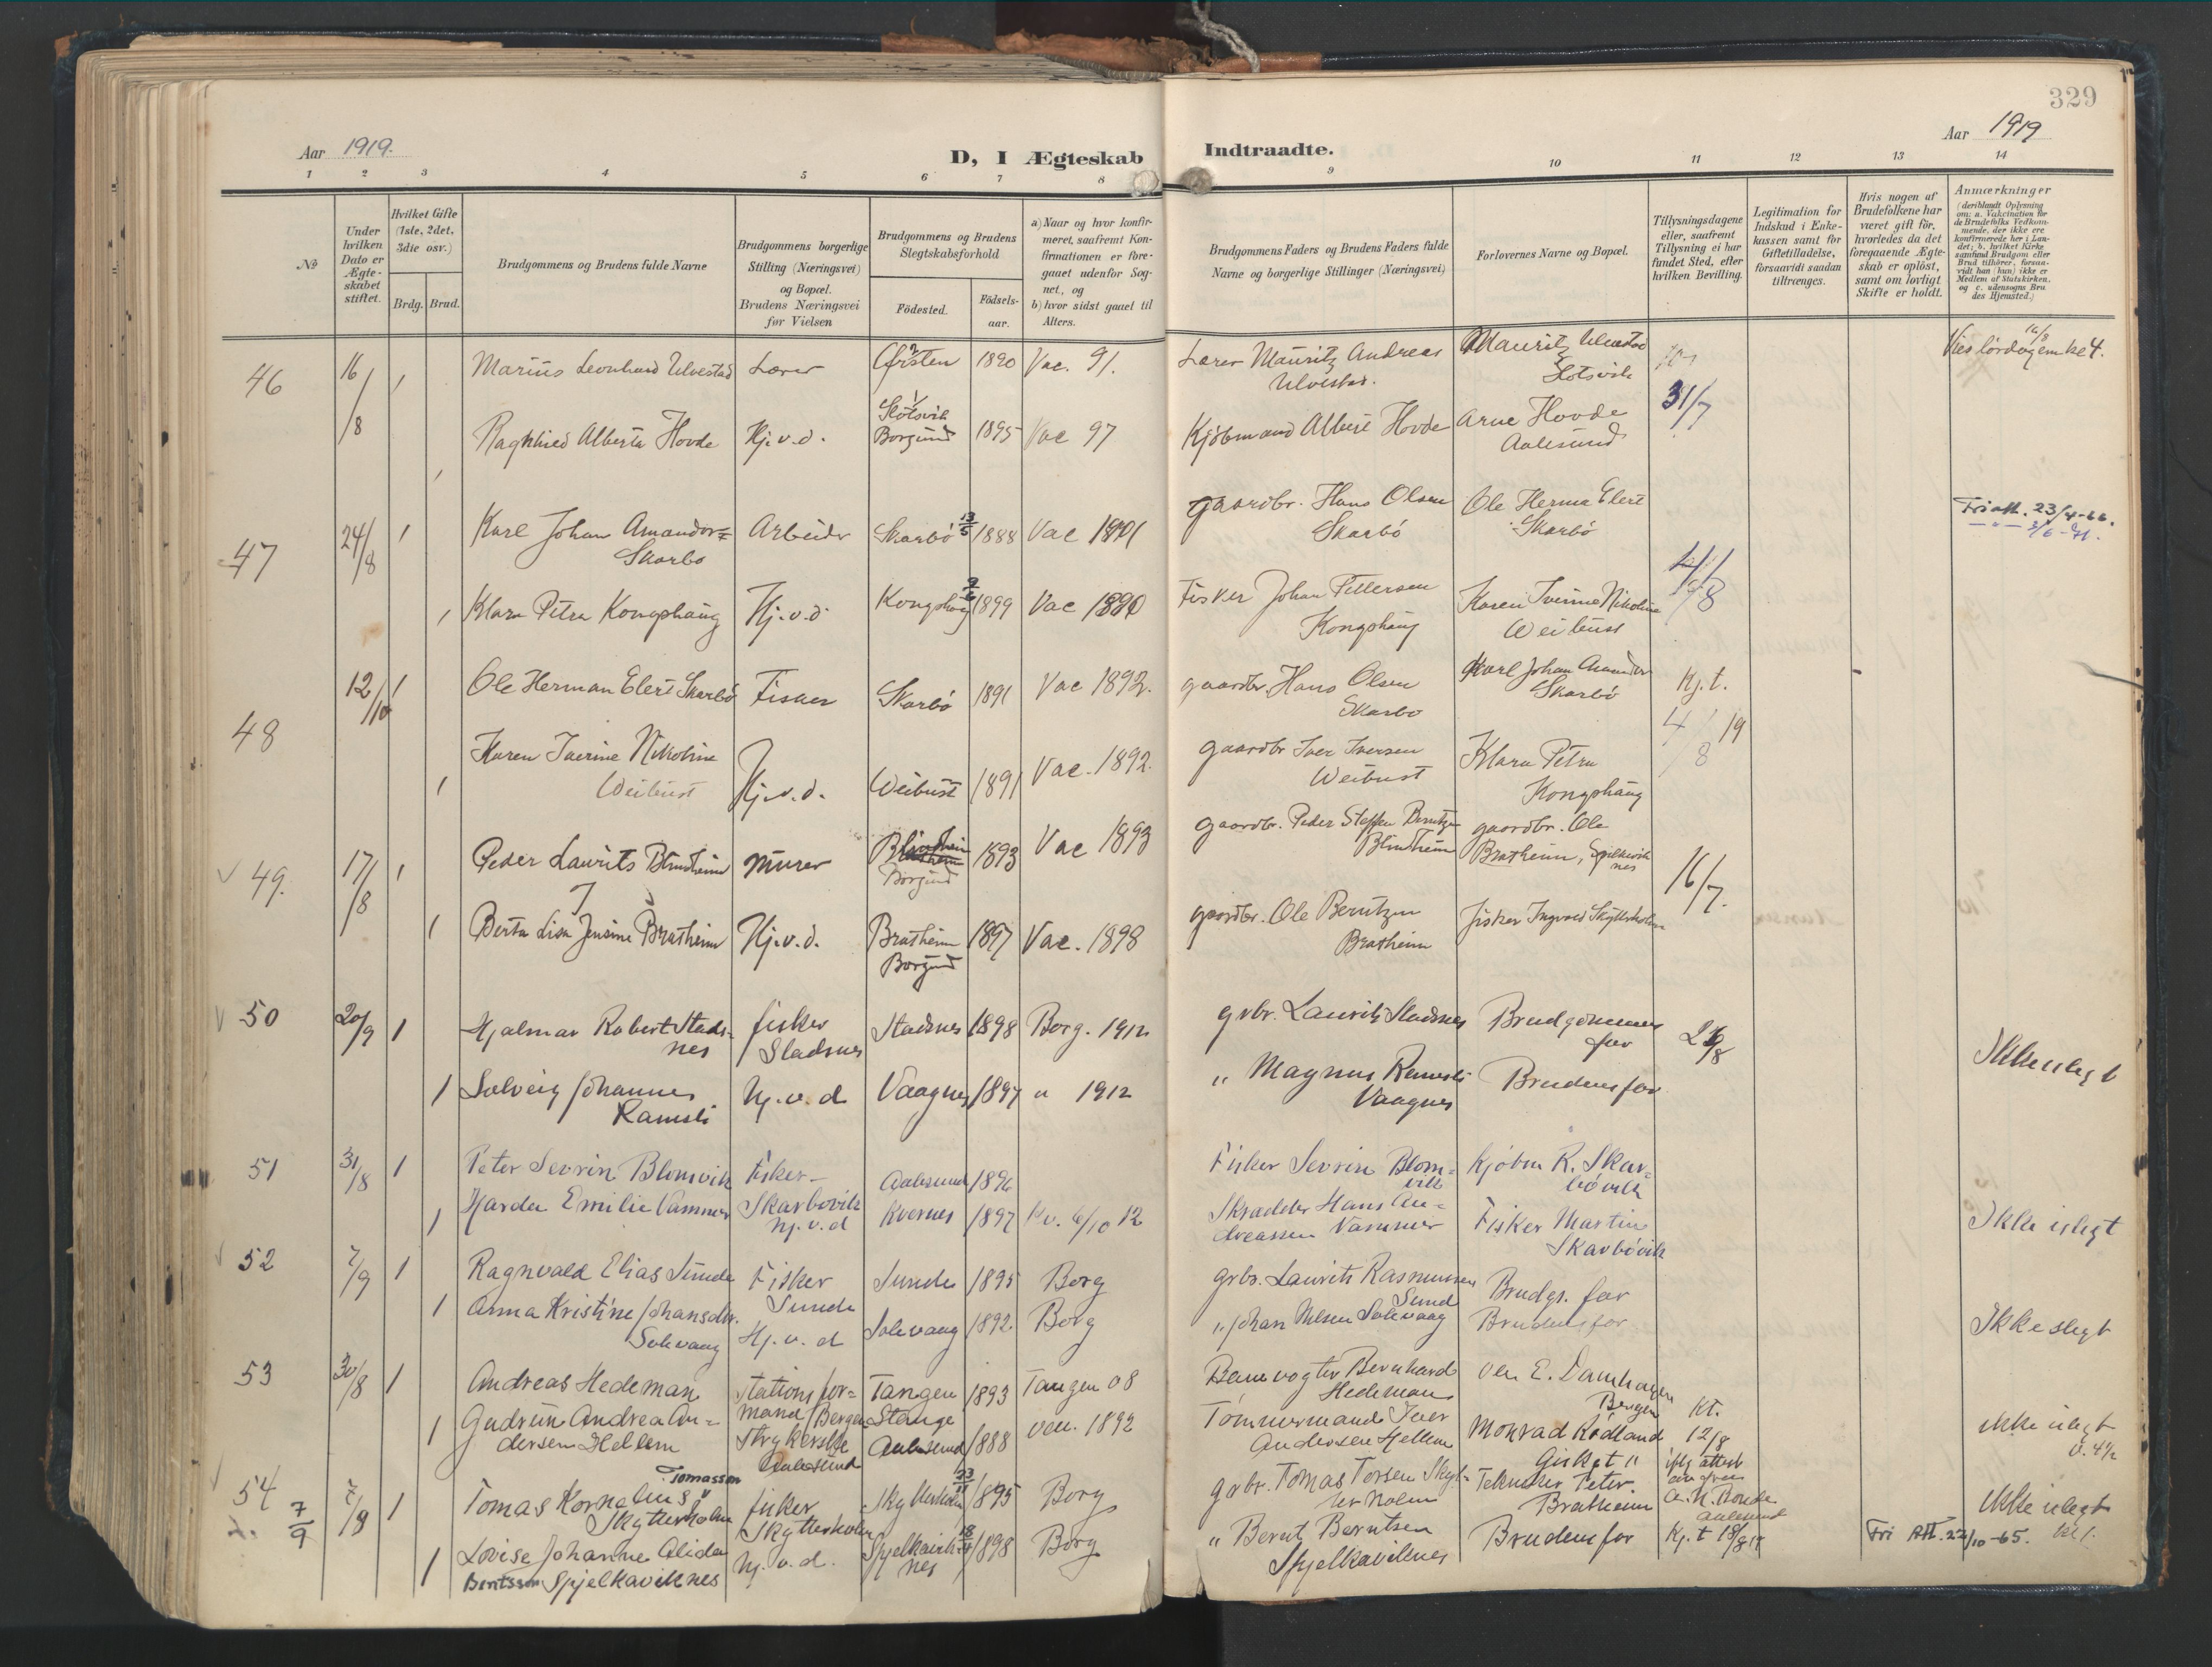 329
Aar 1919.
D, I Ægteskab Indtraadte.
Aar 1919
1 2 3 4 5 6 7 8 9 10 11 12 13 14
No
Under hvilken Dato er Ægte-skabet stiftet.
Hvilket Gifte (1ste, 2det, 3die osv.)
Brdg. Brud.
Brudgommens og Brudens fulde Navne
Brudgommens borgerlige Stilling (Næringsvei) og Bopæl. Brudens Næringsvei før Vielsen
Brudgommens og Brudens Slegtskabsforhold
Födested.
Födsels-aar.
a) Naar og hvor konfir-meret, saafremt Kon-firmationen er fore-gaaet udenfor Sog-net, og b) hvor sidst gaaet til Alters.
Brudgommens Faders og Brudens Faders fulde Navne og borgerlige Stillinger (Næringsvei)
Forlovernes Navne og Bopæl.
Tillysningsdagene eller, saafremt Tillysning ei har fundet Sted, efter hvilken Bevilling.
Legitimation for Indskud i Enke-kassen samt for Giftetilladelse, forsaavidt saadan tiltrænges.
Hvis nogen af Brudefolkene har været gift før, hvorledes da det foregaaende Ægte-skab er oplöst, samt om lovligt Skifte er holdt.
Anmærkninger (deriblandt Oplysning om: a. Vakcination for de Brudefolks Vedkom-mende, der ikke ere konfirmerede her i Lan-det; b. hvilket Kirke samfund Brudgom eller Brud tilhörer, forsaa-vidt han (hun) ikke er Medlem af Statskirken, og c. udensogns Bru des Hjemsted.)
46 16/8 1 Marius Leonhard Ulvestad Lærer Ørsten 1890 Vac. 91. Lærer Mauritz Andreas Ulvestad. Mauritz Ulvestad Slotsvik
Ragnhild Alberta Hovde Hj.v.d. Slotsvik Borgund 1895 Vac 97 Kjöbmand Albert Hovde Arne Hovde Aalesund 31/7
47 24/8 1 Karl Johan Amandus Skarbö Arbeider Skarbö 13/5 1888 Vac gaardbr. Hans Olsen Skarbö Ole Herman Elert Skarbö Fri att. 23/4-66.
1 Klara Petra Kongshaug Hj.v.d. Kongshaug 1899 Vac Fisker Johan Pettersen Kongshaug Karen Iverine Nikoline Weibust
48 12/10 1 Ole Herman Elert Skarbö Fisker Skarbö 1891 Vac 1892. gaardbr. Hans Olsen Skarbö Karl Johan Amandus Skarbö Kj.t. 4/8 19
1 Karen Iverine Nikoline Weibust Hj.v.d. Weibust 1891 Vac. 1892. gaardbr Iver Iversen Weibust Klara Petra Kongshaug
49. 17/8 1 Peder Laurits Blindheim Murer Blindheim Borgund 1893 Vac 1893 gaardbr. Peder Steffen Berntzen Blindheim gaardbr. Ole Bratheim, Spilkeviknes 16/7.
1 Berta Lisa Jensine Bratheim Hj.v.d. Bratheim Borgund 1897 Vac. 1898 gaardbr. Ole Berntzen Bratheim fisker Ingvald Skytterholm
50 20/9 1 Hjalmar Robert Stadsnes fisker Stadsnes Stadsnes 1898 Borg. 1912 grbr. Laurits Stadsnes Brudgommens far
1 Solveig Johannes Ramsli Hj.v.d Vaagnes 1897 " 1912 " Magnus Ramsli Vaagnes Brudens far Ikke i slegt
51 31/8 1 Peter Sevrin Blomvik Fisker- Skarbövik Aalesund 1896 Fisker Sevrin Blom=vik Kjöbm R. Skar=bövik
1 Harda Emilie Vammer Hj.v.d Kvernes 1897 Kv. 6/10 12 Skrædder Hans An=dreassen Vammer Fisker Martin Skarbövik Ikke i slegt
52 7/9 1 Ragnvald Elias Sunde Fisker Sunde Sunde 1895 Borg grbr. Laurits Rasmussen Sund Brudgs. far
1 Anna Kristine Johansdtr. Solevaag Hj.v.d Solevaag 1892 Borg " Johan Nilsen Solevaag Brudens far Ikke slegt
53 30/8 1 Andreas Hedeman Stations for=mand Bergen Tangen Stange 1893 Tangen 08 Banevogter Bernhard Hedeman Ole E. Damhagen Bergen Kt. 12/8
1 Gudrun Andrea An=dersen Hellem Strykerske Aalesund Aalesund 1888 1892 Tömmermand Iver Andersen Hellem Monrad Rödland ikke i slegt
54 7/9 7/9 1 Tomas Kornelius Tomassen Skytterholm fisker Skytterholm Skytterholm 1895 Borg grbr. Tomas Torsen Skyt=terholm Tekniker Peter Bratheim ikke i slegt
1 Lovise Johanne Alida Berntssen Spjelkaviknes Hj.v.d. Spjelkaviknes 18/4 1898 Borg " Bernt Berntsen Spjelkaviknes Brudens far Kj.t 18/8 19 Fri Att. 22/10-65. kl 1.